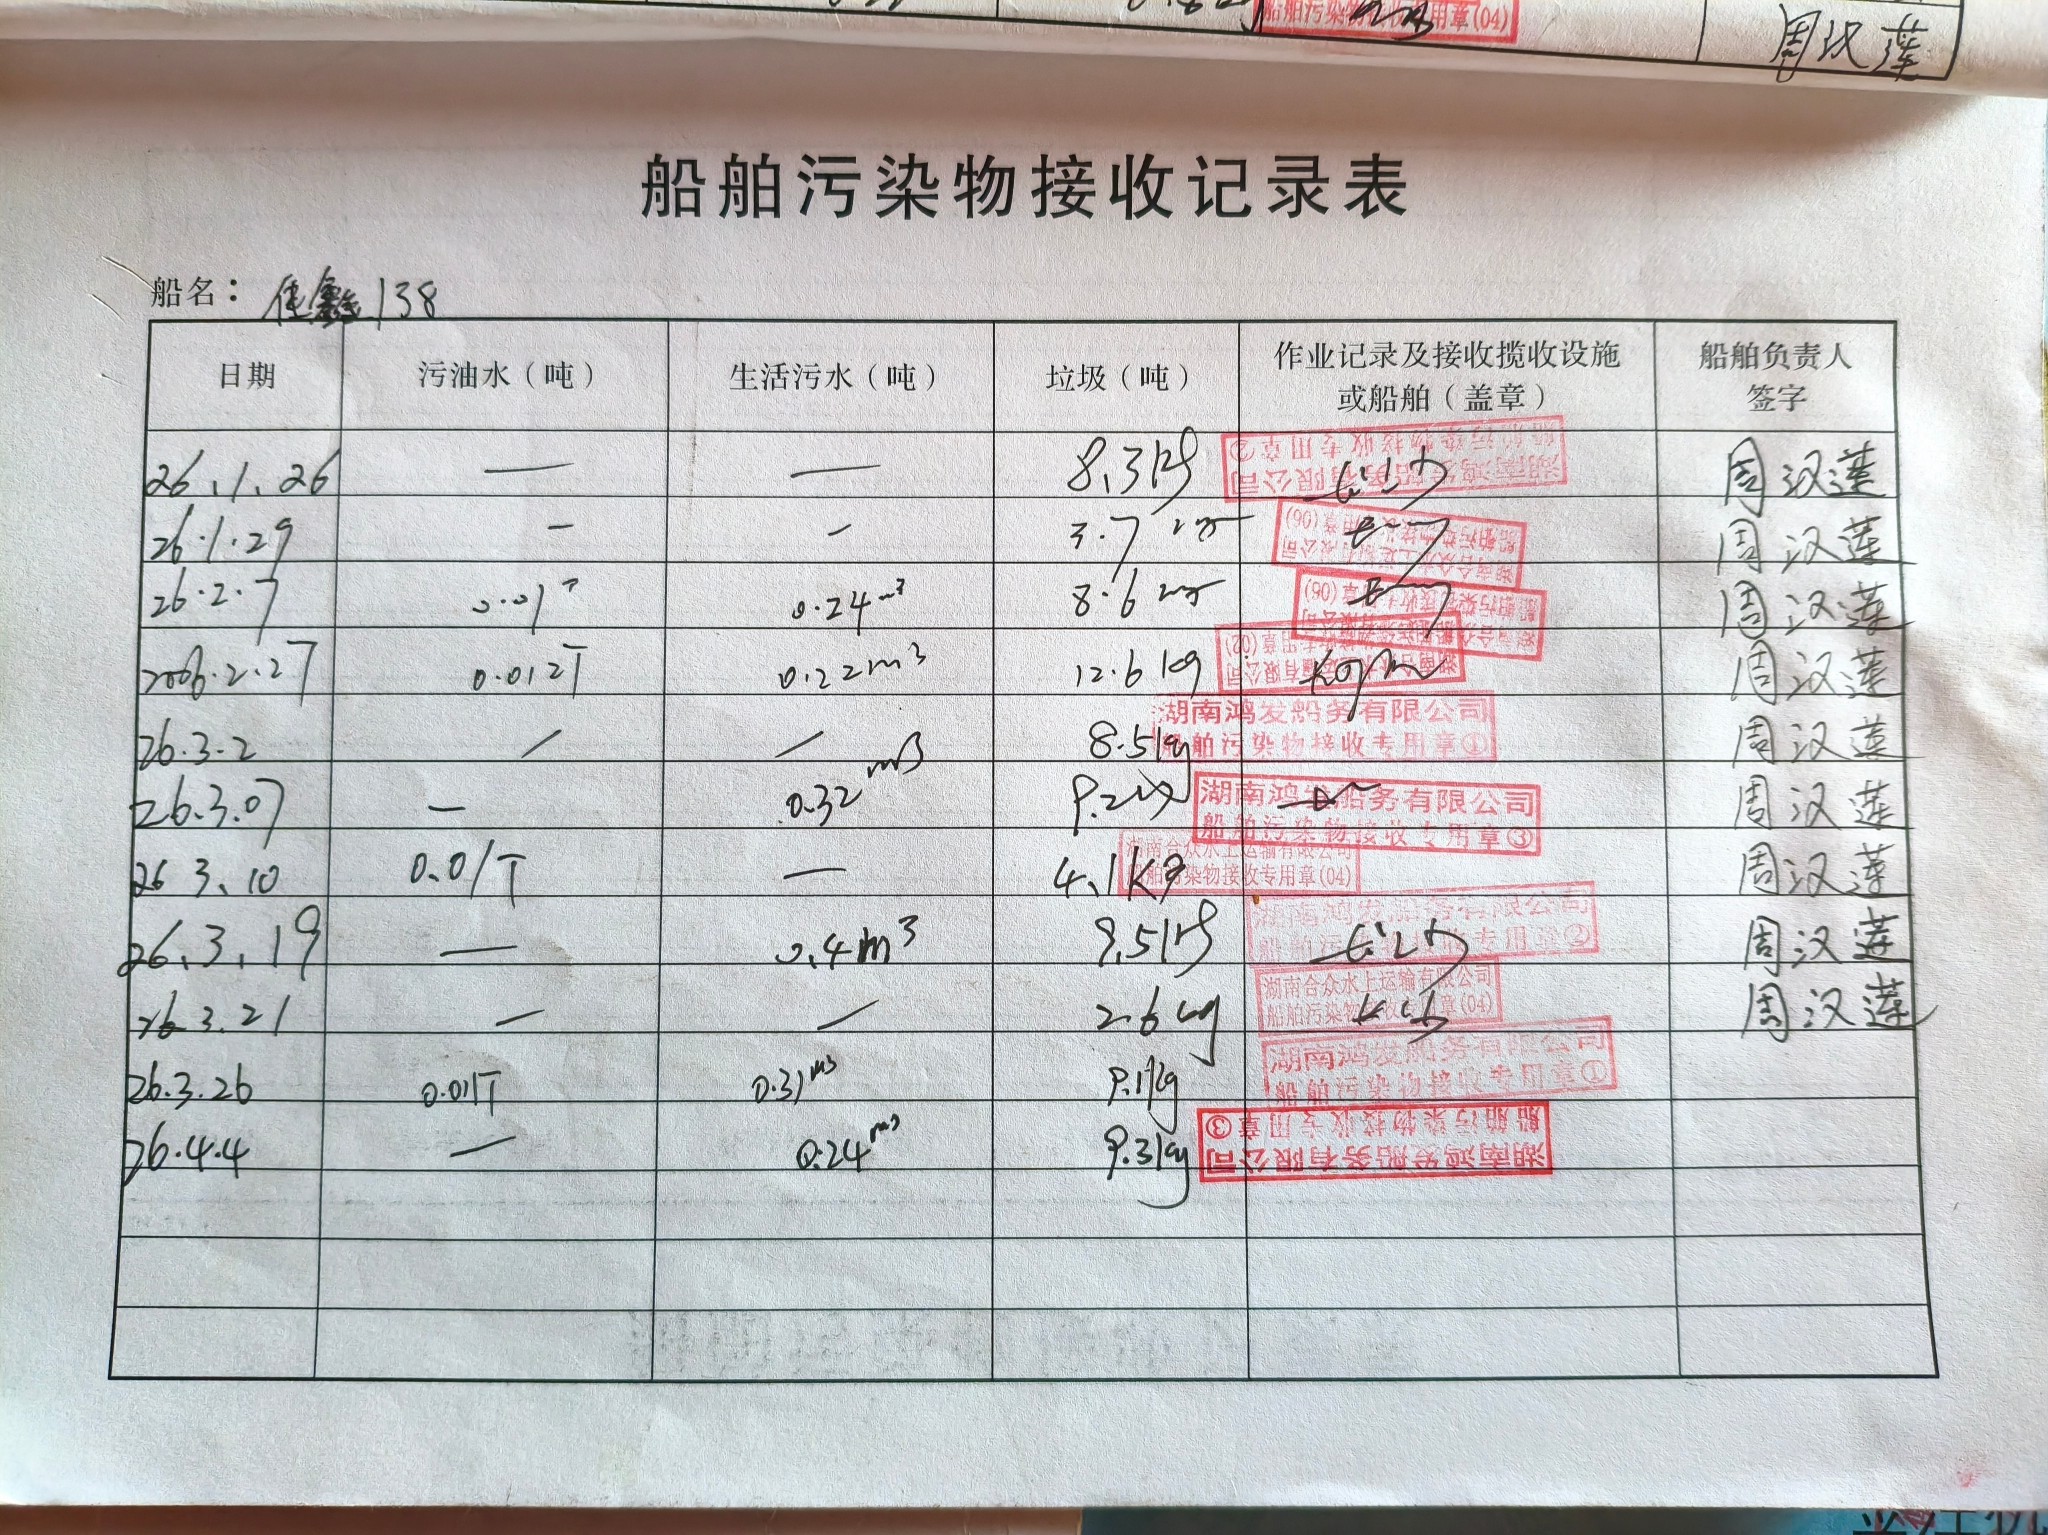 船舶污染物接收专用章(04)
周汉莲
船舶污染物接收记录表
船名： 佳鑫138
日期 污油水（吨） 生活污水（吨） 垃圾（吨） 作业记录及接收揽收设施或船舶（盖章） 船舶负责人签字
26.1.26 — — 8.3kg 湖南鸿发船务有限公司 船舶污染物接收专用章② 周汉莲
26.1.29 — — 3.7 湖南合众水上运输有限公司 船舶污染物接收专用章(06) 周汉莲
26.2.7 0.01T 0.24m³ 8.6 船舶污染物接收专用章(06) 周汉莲
2026.2.27 0.012T 0.22m³ 12.6kg 周汉莲
26.3.2 / — 8.5kg 湖南鸿发船务有限公司 船舶污染物接收专用章① 周汉莲
26.3.07 — 0.32m3 9.2kg 湖南鸿发船务有限公司 船舶污染物接收专用章③ 周汉莲
26 3.10 0.01T — 4.1Kg 湖南合众水上运输有限公司 船舶污染物接收专用章(04) 周汉莲
26.3.19 — 0.4m³ 9.5kg 湖南鸿发船务有限公司 船舶污染物接收专用章② 周汉莲
26 3.21 — — 2.6kg 湖南合众水上运输有限公司 船舶污染物接收专用章(04) 周汉莲
26.3.26 0.01T 0.31m³ 9.1kg 湖南鸿发船务有限公司 船舶污染物接收专用章①
26.4.4 — 0.24m³ 9.3kg 湖南鸿发船务有限公司 船舶污染物接收专用章③